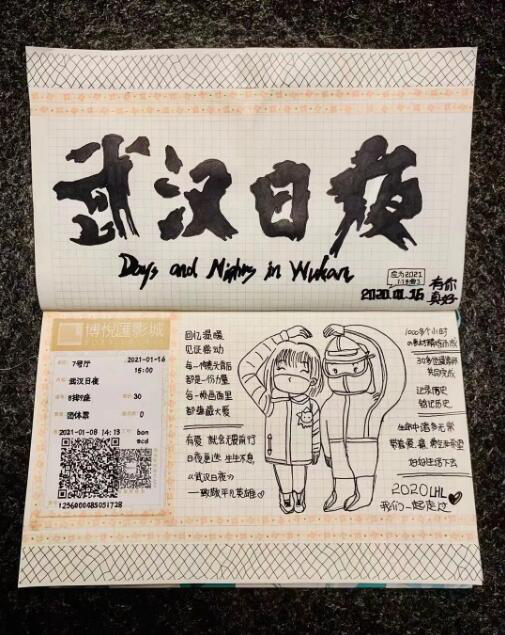 武汉日夜
Days and Nights in Wuhan
应为2021
2020.01.16
有你
真好
博悦匯影城
7号厅
2021-01-16
15:00
武汉日夜
8排9座
30
团体票
0
2021-01-08 14:13
bon
scd
1256000485051728
回忆温暖
见证感动
每一个镜头背后
都是一份力量
每一帧画面里
都蕴藏大爱
有爱 就会无畏前行
日夜更迭 生生不息
《武汉日夜》
一致敬平凡英雄
1000多个小时
的素材精炼而成
30多位摄影师
共同完成
记录历史
铭记历史
生命中诸多无常
带着爱、善、勇气和希望
好好生活下去
2020LHL
我们一起走过